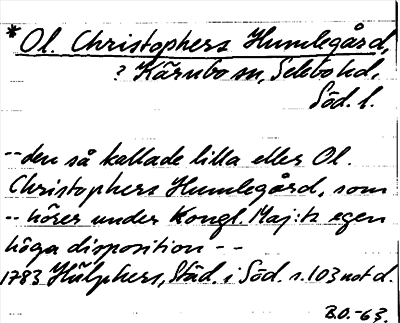 *Ol. Christophers Humlegård,
? Kärnbo sn, Selebo hd,
Söd. l.
--den så kallade lilla eller Ol.
Christophers Humlegård, som
-- hörer under Kongl. Maj:tz egen
höga disposition --
1783 Hülphers, Städ. i Söd. s. 103 not d.
B.O.-63.